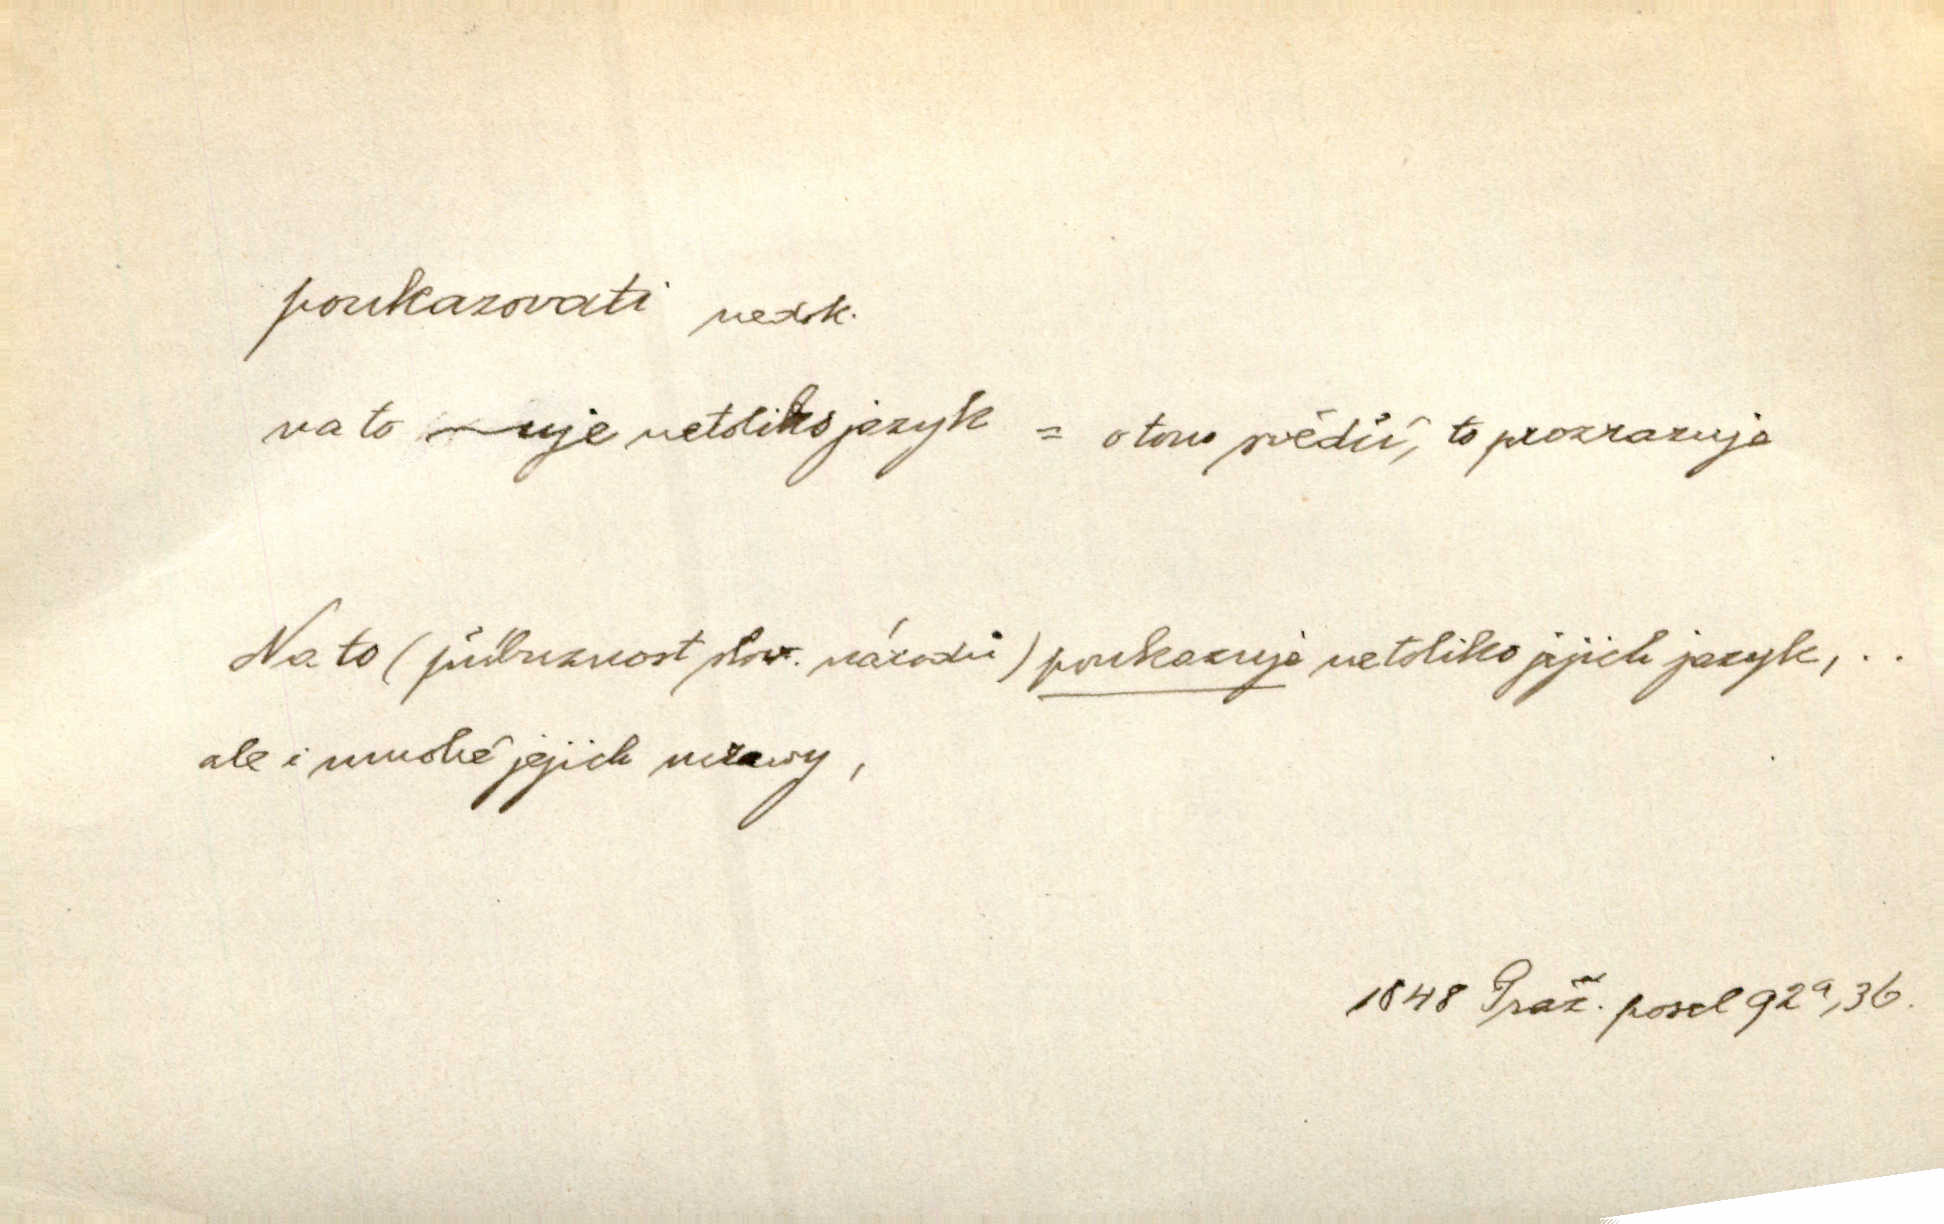 poukazovati nedok.
na to ~uje netoliko jazyk = o tom svědčí, to prozrazuje
Na to (příbuznost slow. národů) poukazuje netoliko jejich jazyk, ..
ale i mnohé jejich mrawy,
1848 Praž. posel 92a,36.